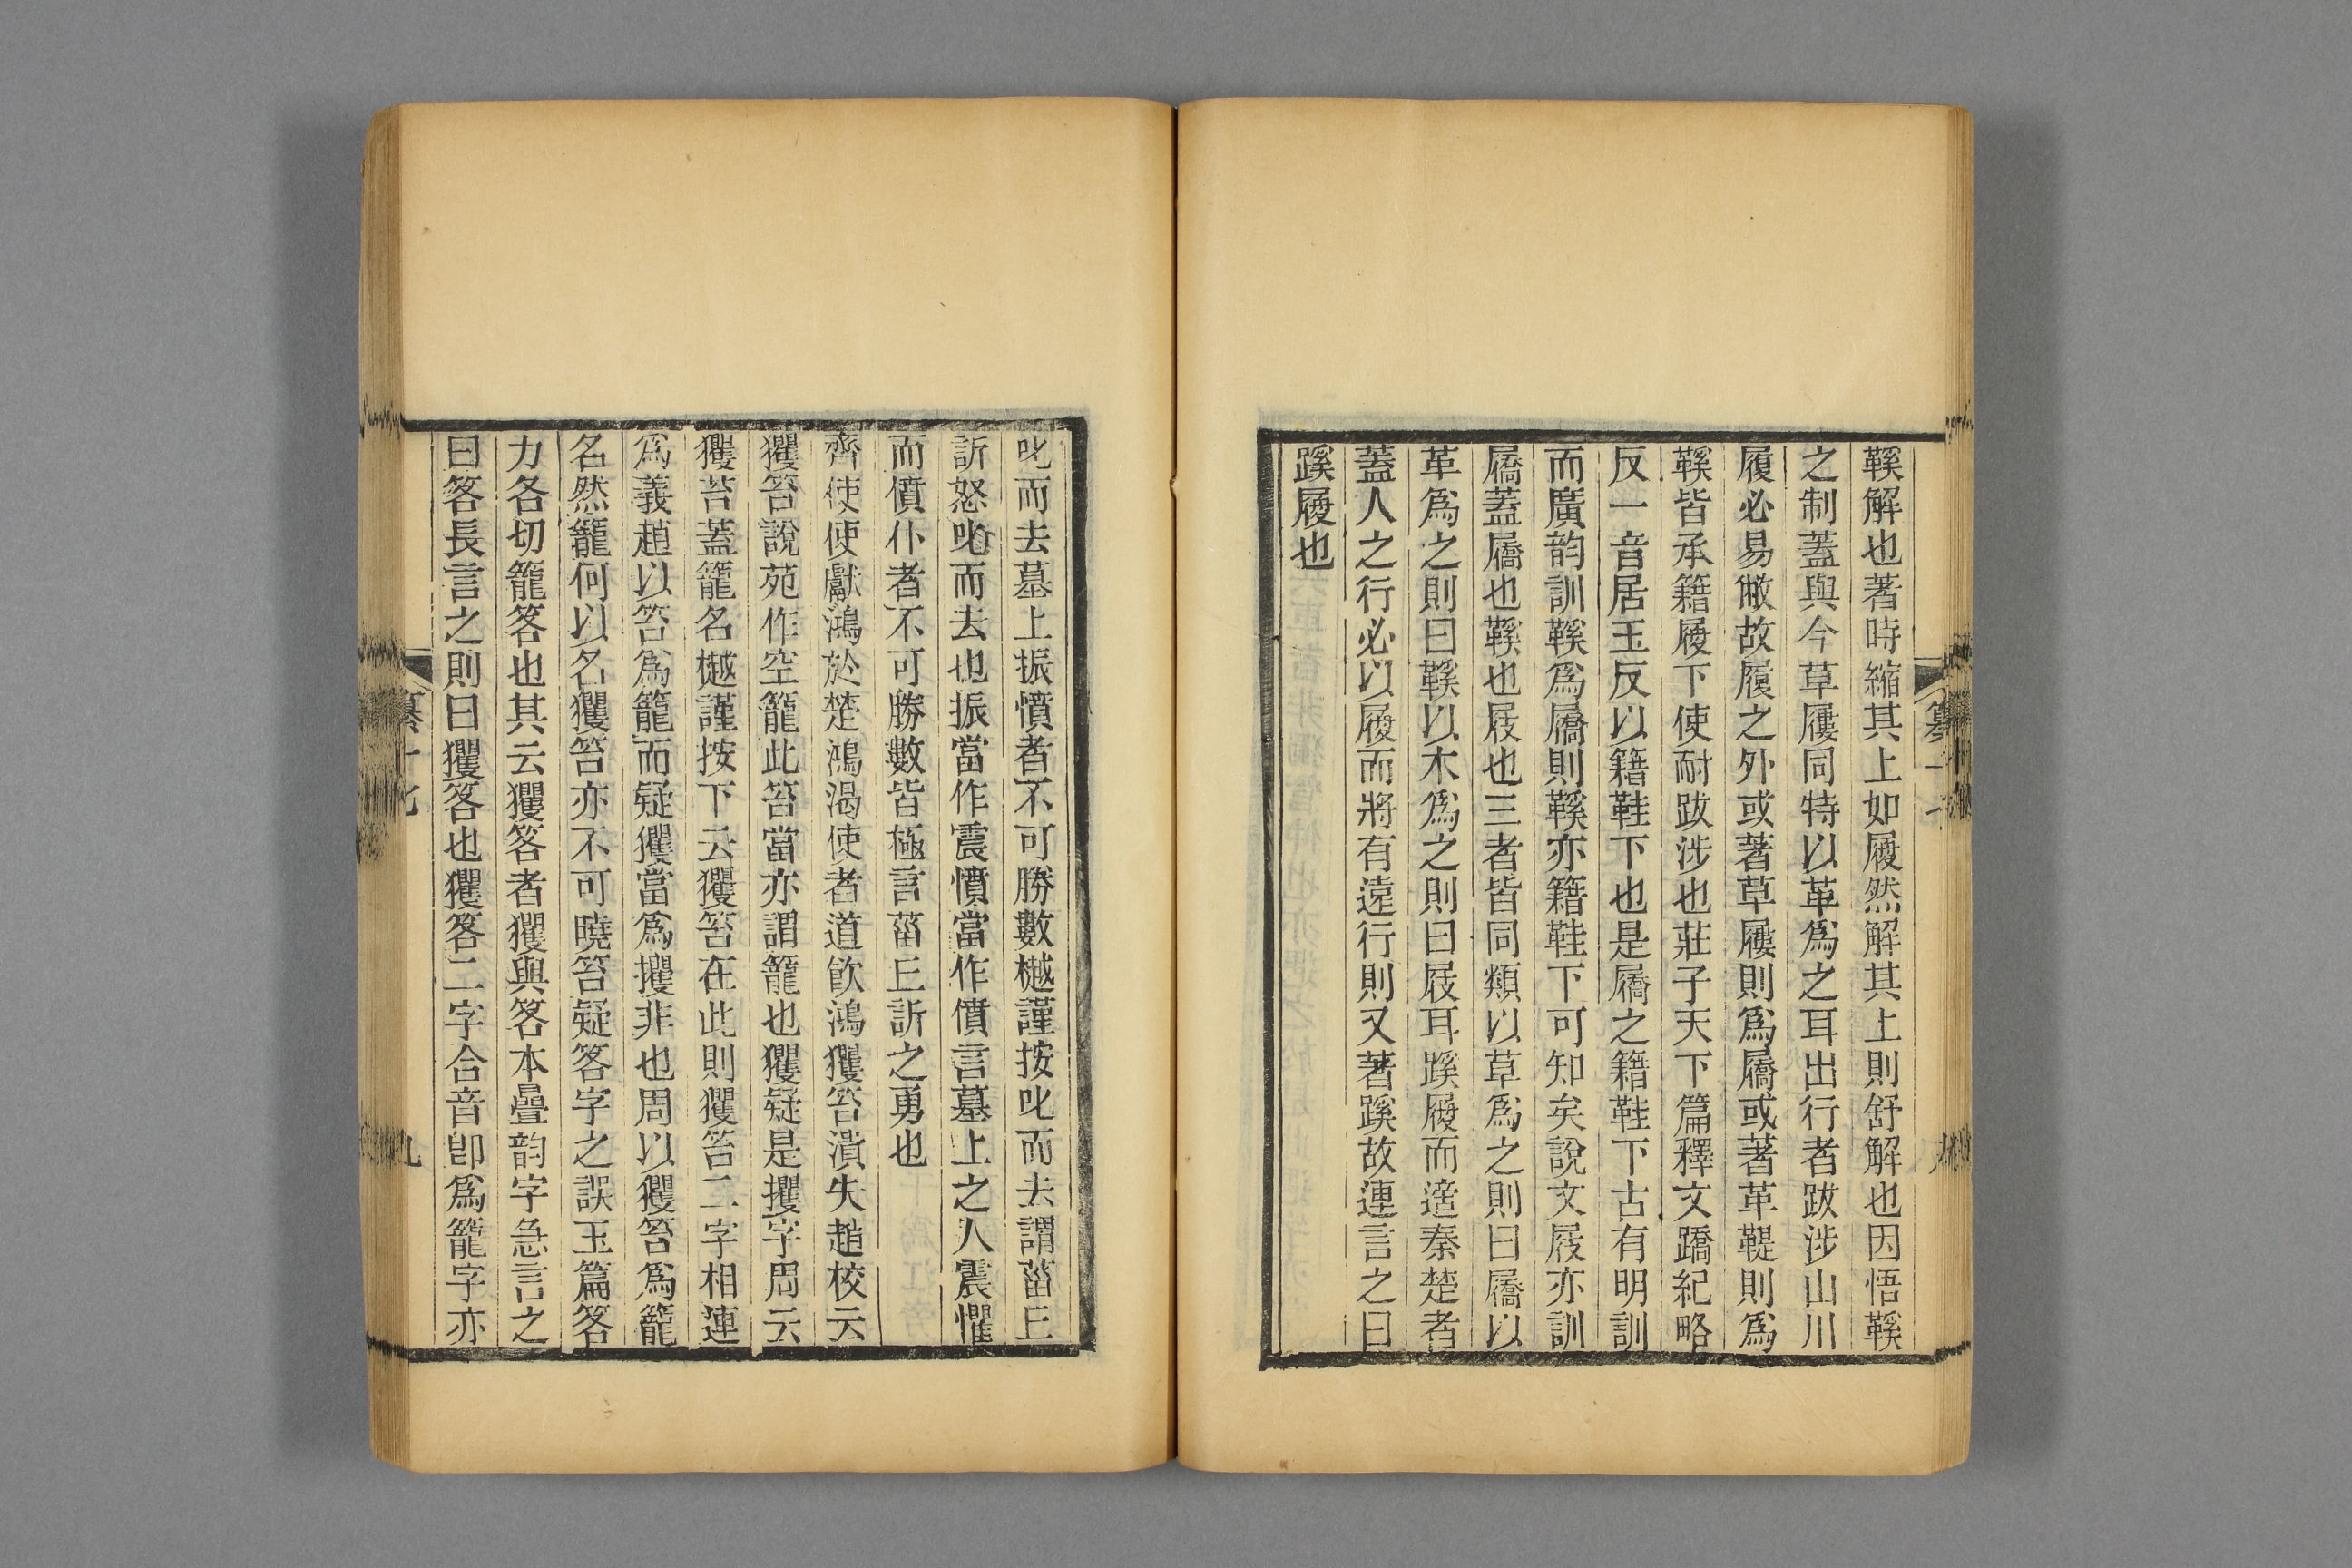 鞵解也著時縮其上如履然解其上則舒解也因悟鞵
之制蓋與今草屨同特以革爲之耳出行者跋涉山川
履必易敝故履之外或著草屨則爲屩或著革鞮則爲
鞵皆承籍履下使耐跋涉也莊子天下篇釋文蹻紀略
反一音居玉反以籍鞋下也是屩之籍鞋下古有明訓
而廣韵訓鞵爲屩則鞵亦籍鞋下可知矣說文屐亦訓
屩蓋屩也鞵也屐也三者皆同類以草爲之則曰屩以
革爲之則曰鞵以木爲之則曰屐耳蹊履而造秦楚者
蓋人之行必以履而將有遠行則又著蹊故連言之曰
蹊履也
叱而去墓上振憤者不可勝數樾謹按叱而去謂菑丘
訢怒叱而去也振當作震憤當作僨言墓上之人震懼
而僨仆者不可勝數皆極言菑丘訢之勇也
齊使使獻鴻於楚鴻渴使者道飲鴻玃笞潰失趙校云
玃笞說苑作空籠此笞當亦謂籠也玃疑是攫字周云
玃笞蓋籠名樾謹按下云玃笞在此則玃笞二字相連
爲義趙以笞爲籠而疑玃當爲攫非也周以玃笞爲籠
名然籠何以名玃笞亦不可曉笞疑笿字之誤玉篇笿
力各切籠笿也其云玃笿者玃與笿本疊韵字急言之
曰笿長言之則曰玃笿也玃笿二字合音卽爲籠字亦
纂十七
九